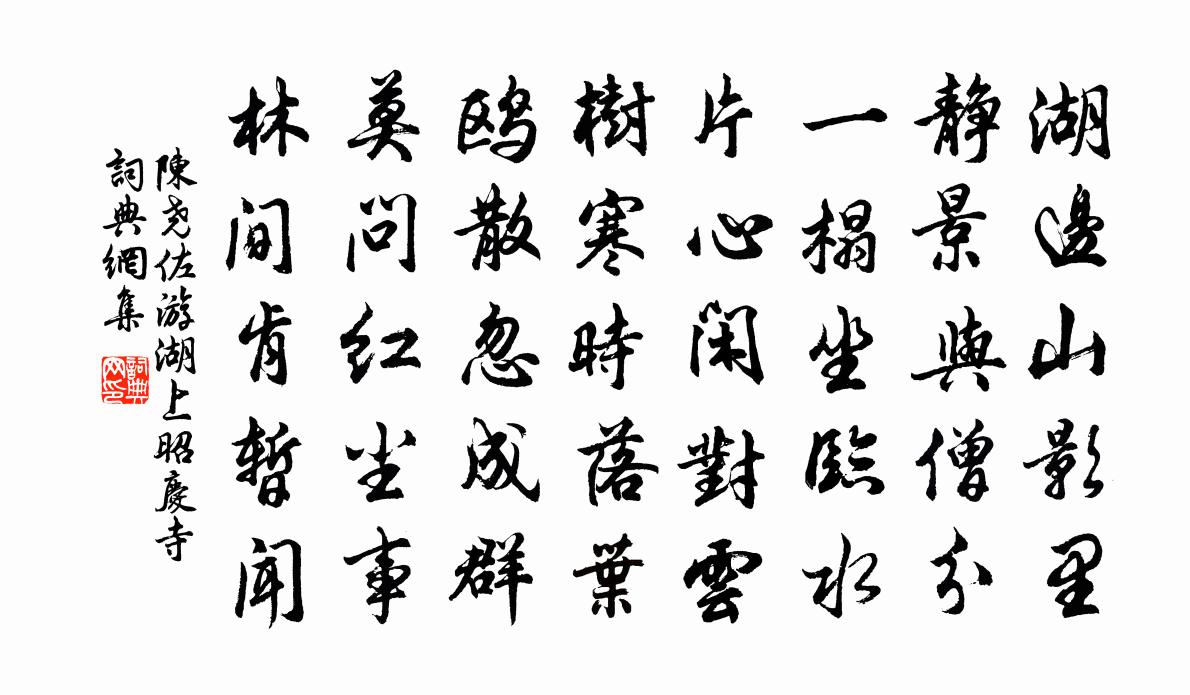 湖邊山影里
靜景與僧分
一榻坐臨水
片心閑對雲
樹寒時落葉
鸥散忽成群
莫问红尘事
林间肯暫闻
陳尧佐游湖上昭慶寺
詞典網集
詞典
网印